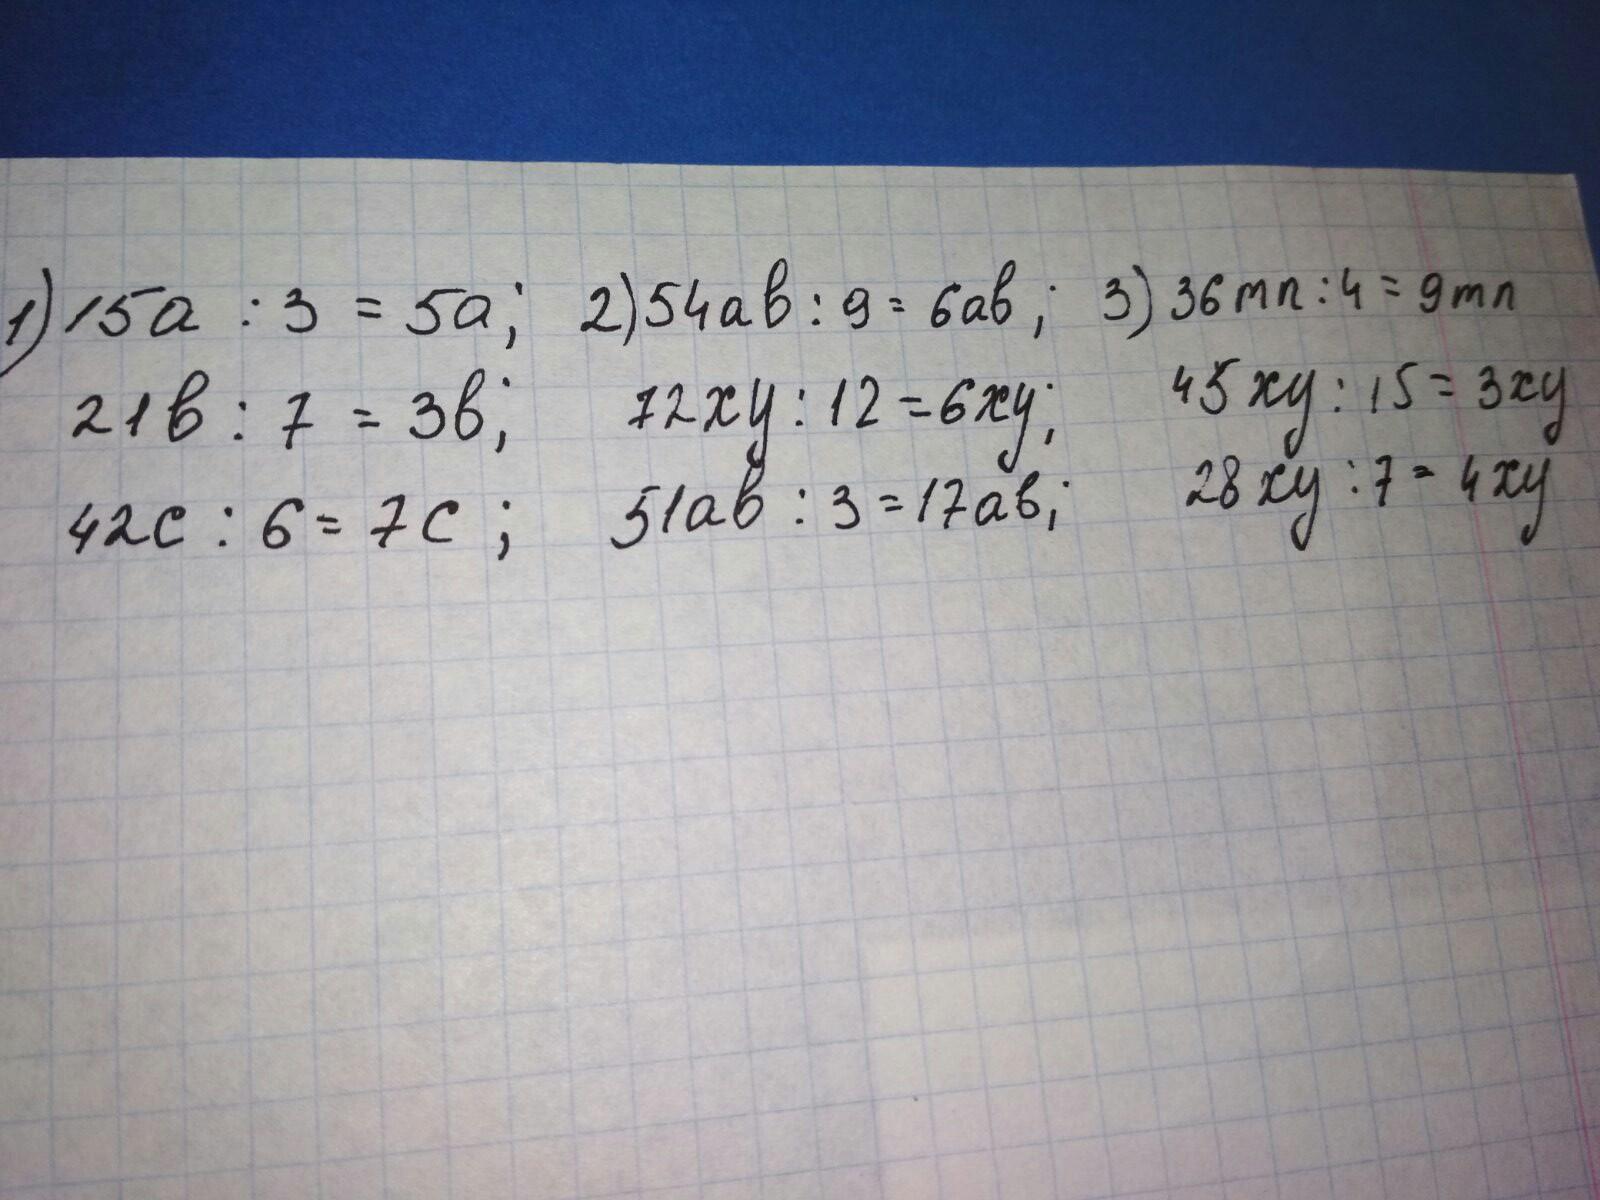 1) 15a : 3 = 5a; 2) 54ab : 9 = 6ab; 3) 36mn : 4 = 9mn
21b : 7 = 3b; 72xy : 12 = 6xy; 45xy : 15 = 3xy
42c : 6 = 7c; 51ab : 3 = 17ab; 28xy : 7 = 4xy